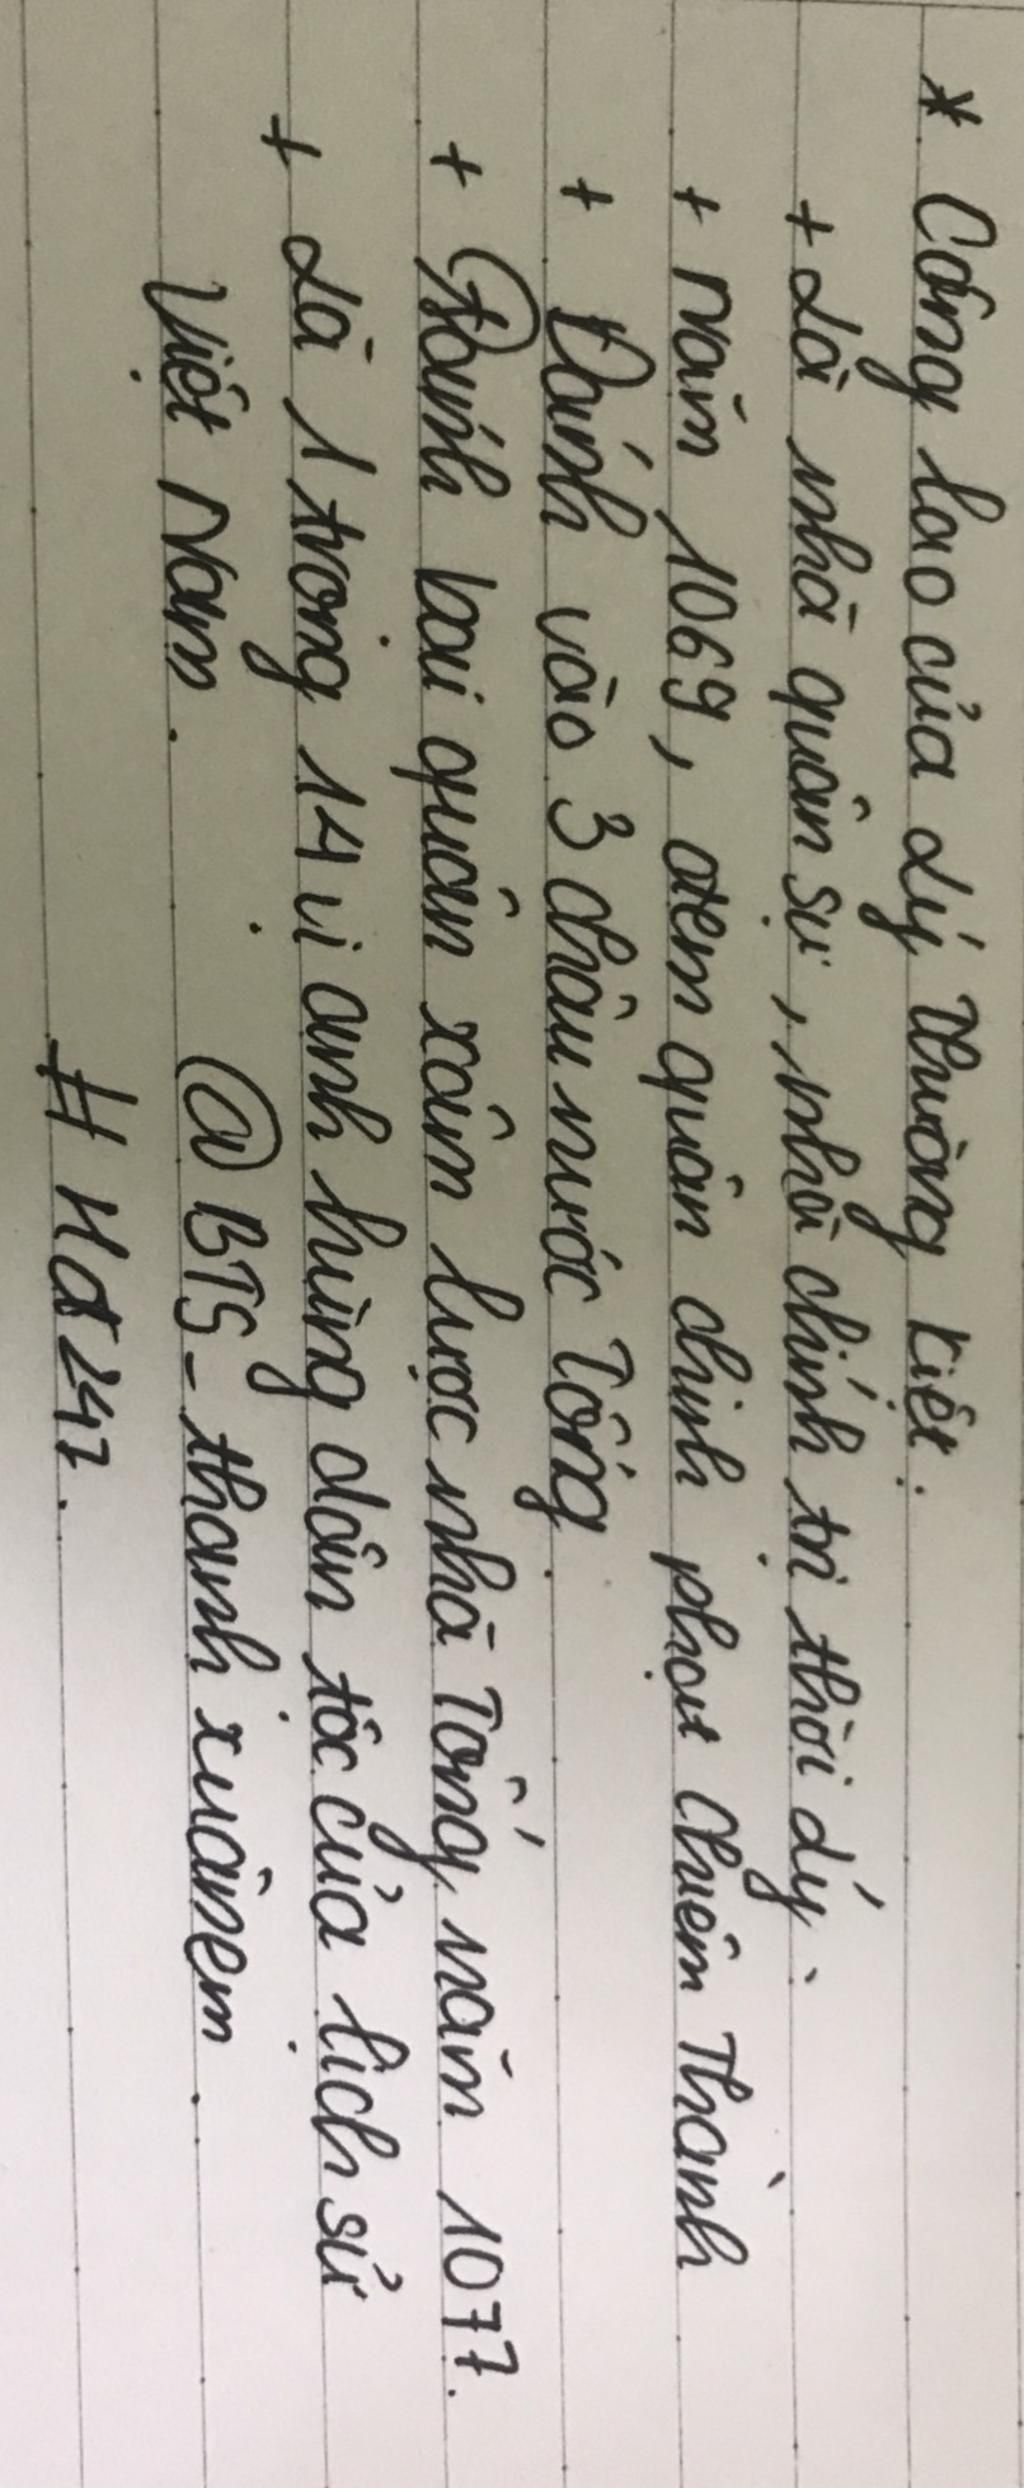 * Công lao của Lý Thường Kiệt:
+ Là nhà quân sự, nhà chính trị thời Lý.
+ Năm 1069, đem quân chinh phạt Chiêm Thành
+ Đánh vào 3 châu nước Tống.
+ Đánh bại quân xâm lược nhà Tống năm 1077.
+ Là 1 trong 14 vị anh hùng dân tộc của lịch sử
Việt Nam. @BTS_thanhxuânem.
# Hđ247.